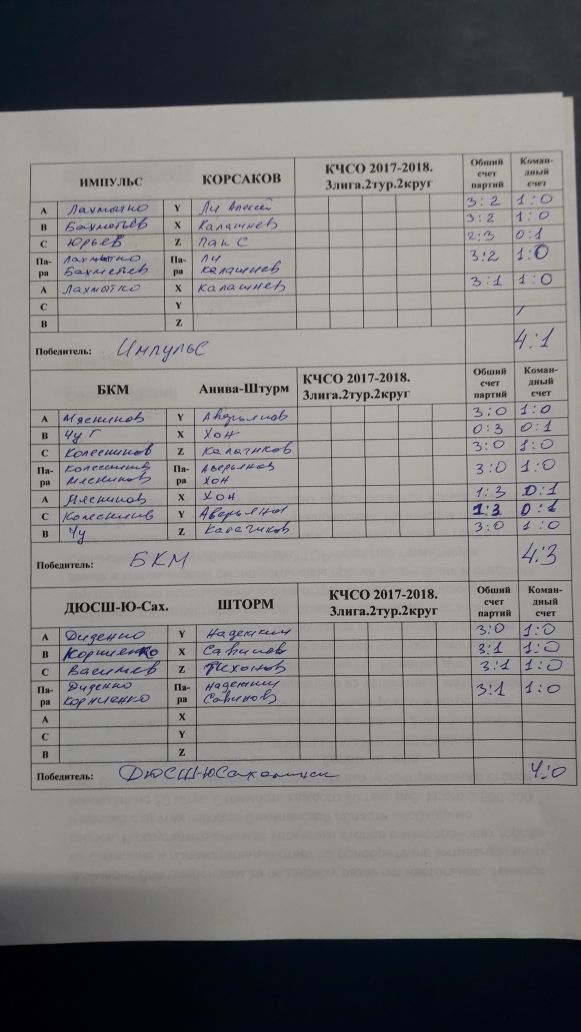 ИМПУЛЬС КОРСАКОВ КЧСО 2017-2018. 3лига.2тур.2круг Общий счет партий Коман-дный счет
А Лахмытко Y Ли Алексей 3:2 1:0
В Бахметьев X Калашнев 3:2 1:0
С Юрьев Z Пак С 2:3 0:1
Па-ра Лахмытко Бахметьев Па-ра Ли Калашнев 3:2 1:0
А Лахмытко X Калашнев 3:1 1:0
С Y
В Z
Победитель: Импульс 4:1
БКМ Анива-Штурм КЧСО 2017-2018. 3лига.2тур.2круг Общий счет партий Коман-дный счет
А Мясников Y Аверьянов 3:0 1:0
В Чу Г X Хон 0:3 0:1
С Колесников Z Калачиков 3:0 1:0
Па-ра Колесников Мясников Па-ра Аверьянов Хон 3:0 1:0
А Мясников X Хон 1:3 0:1
С Колесников Y Аверьянов 1:3 0:1
В Чу Z Калачиков 3:0 1:0
Победитель: БКМ 4:3
ДЮСШ-Ю-Сах. ШТОРМ КЧСО 2017-2018. 3лига.2тур.2круг Общий счет партий Коман-дный счет
А Диденко Y Надешкин 3:0 1:0
В Корниенко X Савинов 3:1 1:0
С Васильев Z Тихонов 3:1 1:0
Па-ра Диденко Корниенко Па-ра Надешкин Савинов 3:1 1:0
А X
С Y
В Z
Победитель: ДЮСШ-Ю.Сахалинск 4:0